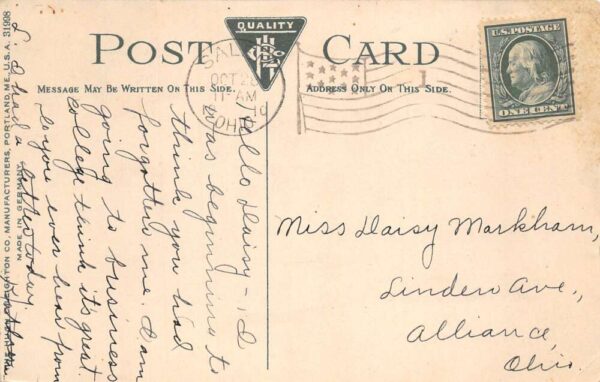 POST CARD
QUALITY
MESSAGE MAY BE WRITTEN ON THIS SIDE.
ADDRESS ONLY ON THIS SIDE.
OCT
11 AM
OHIO
1
U.S. POSTAGE
ONE CENT
Hello Daisy-, I
was beginning to
think you had
forgotten me. I am
going to business
college think its great.
Do you ever hear from
I had a
today.
Miss Daisy Markham,
Linden Ave.,
Alliance,
Ohio.
LEIGHTON CO., MANUFACTURERS, PORTLAND, ME., U.S.A. 31998
MADE IN GERMANY.